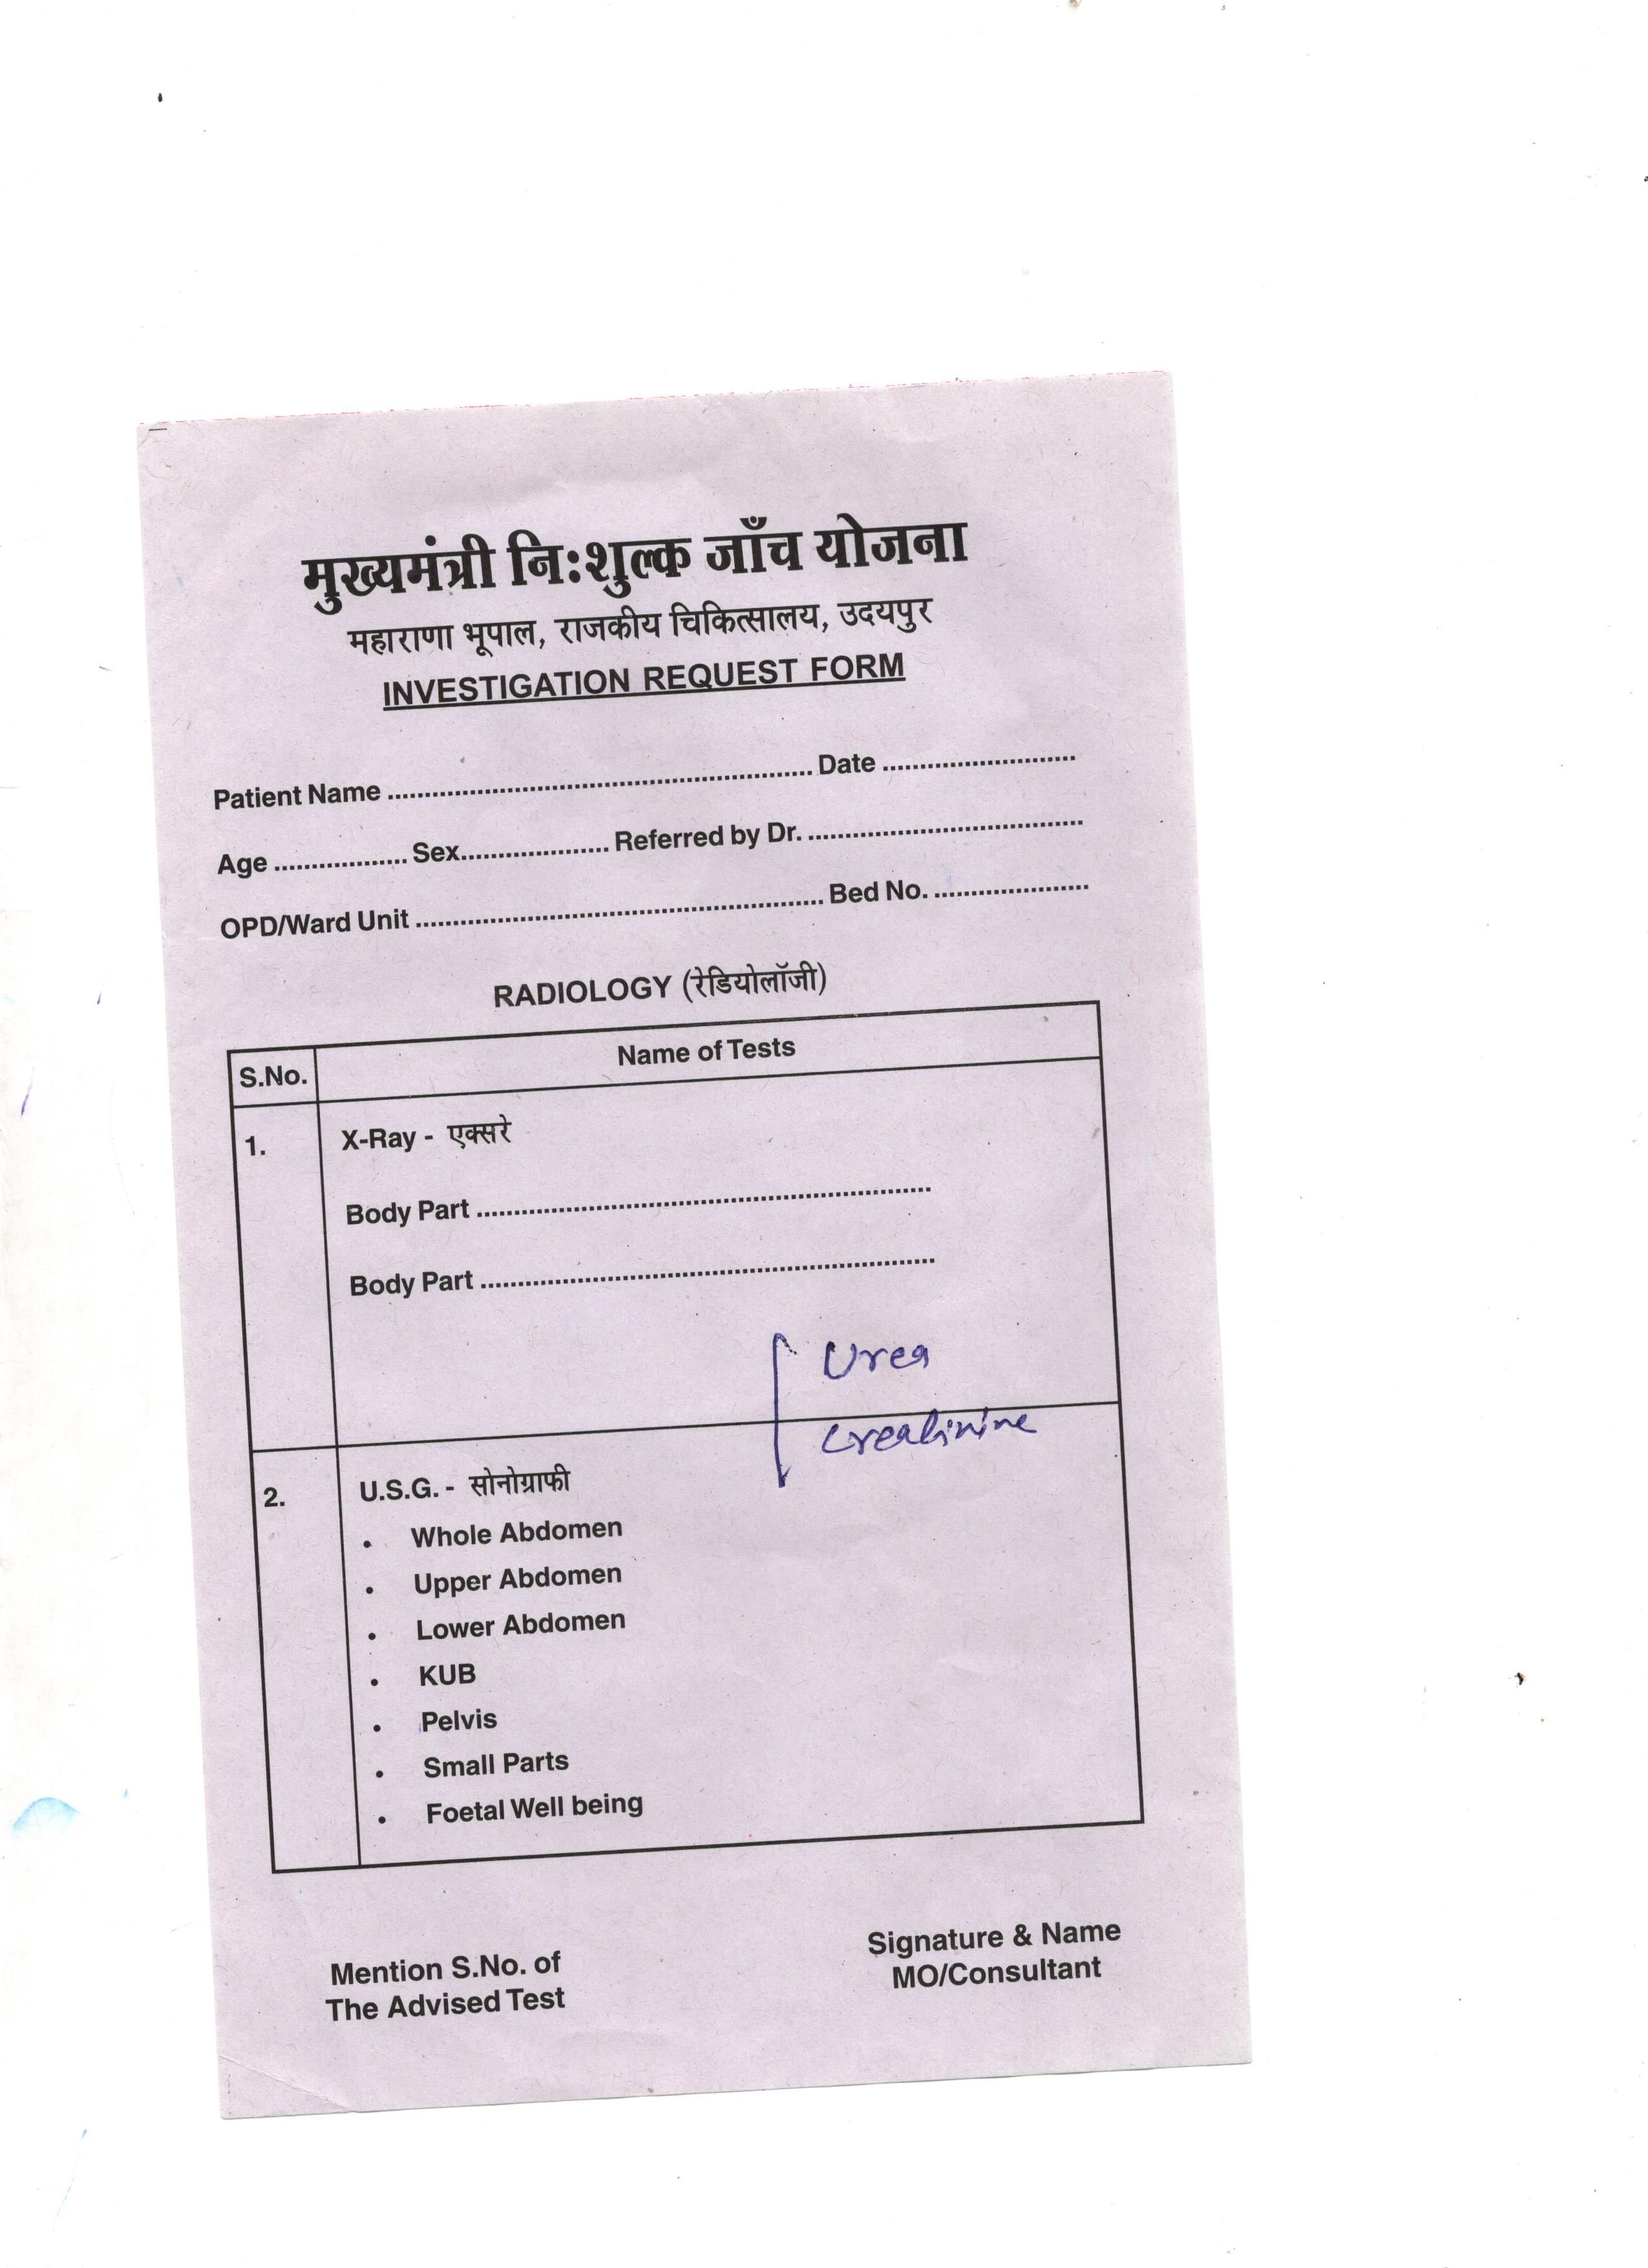 मुख्यमंत्री नि:शुल्क जाँच योजना
महाराणा भूपाल, राजकीय चिकित्सालय, उदयपुर
INVESTIGATION REQUEST FORM
Patient Name ........................................................ Date ..........................
Age .................. Sex.................... Referred by Dr. .....................................
OPD/Ward Unit ....................................................... Bed No. .....................
RADIOLOGY (रेडियोलॉजी)
S.No. Name of Tests
1. X-Ray - एक्सरे
Body Part .............................................................
Body Part .............................................................
Urea
Creatinine
2. U.S.G. - सोनोग्राफी
• Whole Abdomen
• Upper Abdomen
• Lower Abdomen
• KUB
• Pelvis
• Small Parts
• Foetal Well being
Mention S.No. of
The Advised Test
Signature & Name
MO/Consultant